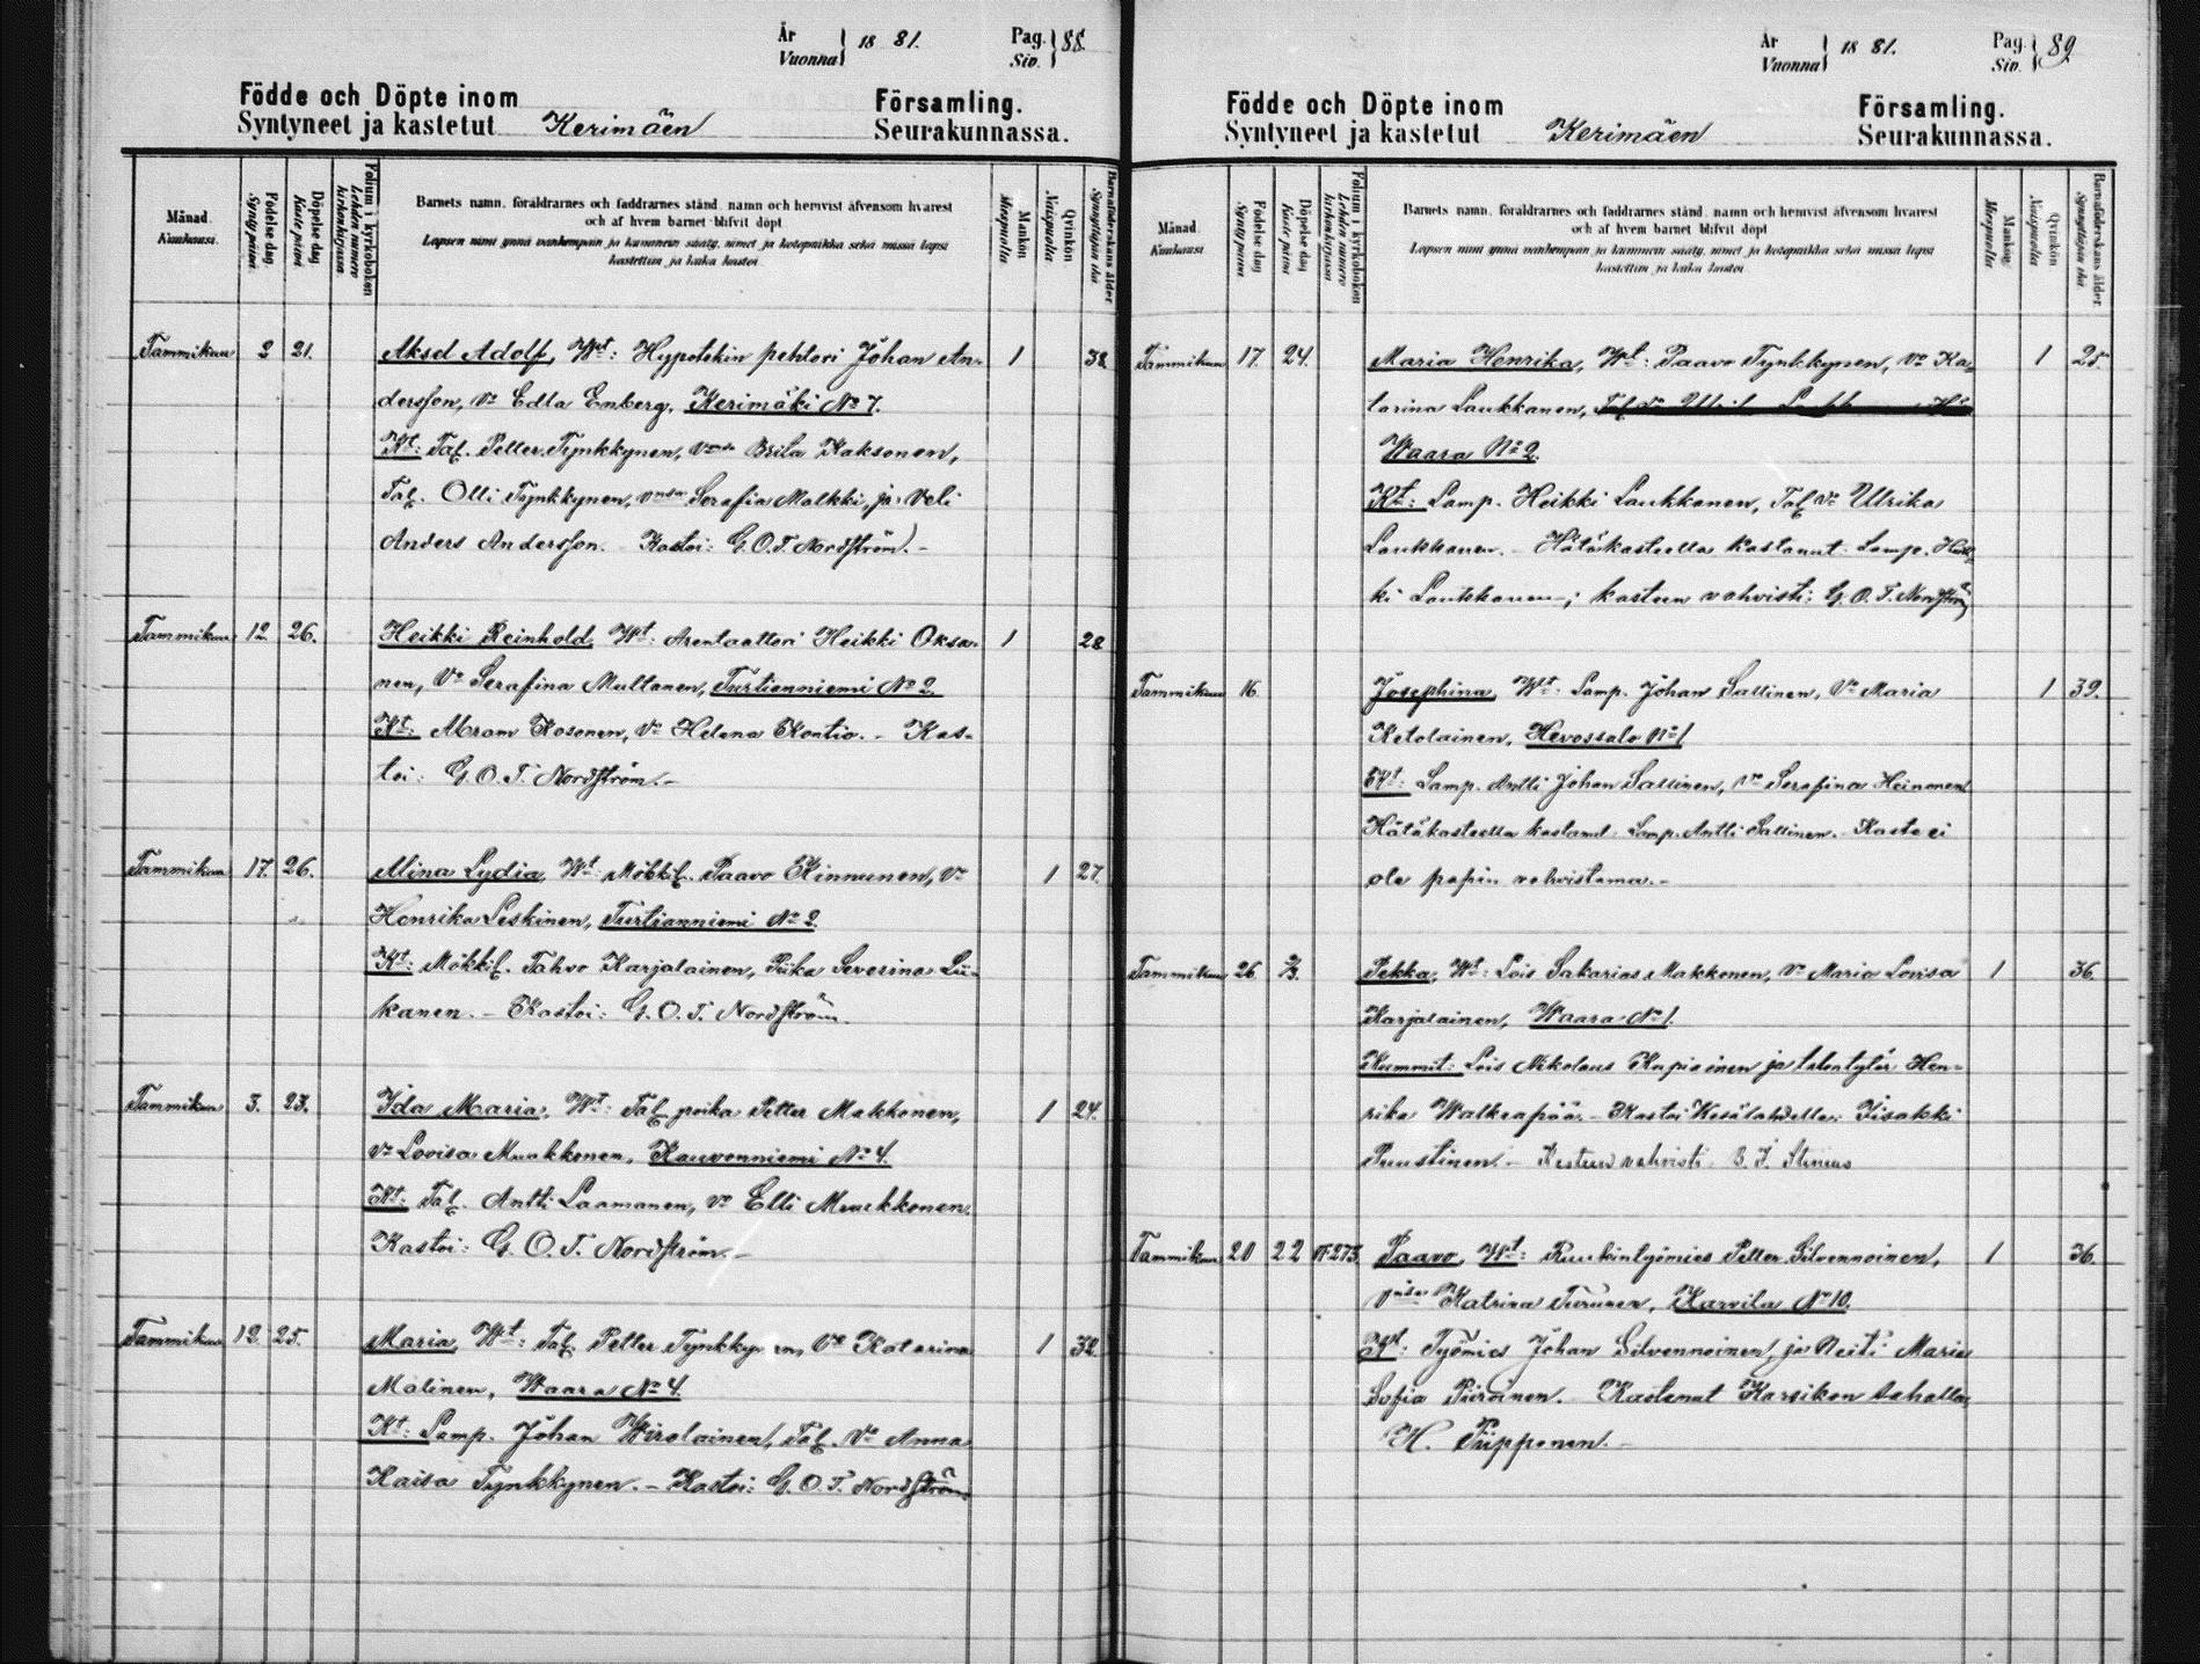 År
Vuonna 18 81. Pag. Siv. 88.
Födde och Döpte inom Församling.
Syntyneet ja kastetut Kerimäen Seurakunnassa.
Månad. Kuukausi.
Födelse dag. Synty päivä
Döpelse dag Kaste päivä
Folium i kyrkoboken Lehden numero kirkonkirjassa
Barnets namn, föräldrarnes och faddrarnes stånd, namn och hemvist äfvensom hvarest
och af hvem barnet blifvit döpt
Lapsen nimi ynnä vanhempain ja kummein sääty, nimet ja kotopaikka sekä missä lapsi
kastettiin ja kuka kastoi
Mankön Miespuolia
Qvinkön Naispuolia
Barnaföderskans ålder Synnyttäjän ikä
Tammikuu 2 21. Aksel Adolf, Wt: Hypotekin pehtori Johan An- 1 38
dersson, vo Edla Enberg, Kerimäki No 7.
Kt: Tal. Petter Tynkkynen, vmsa Brita Kaksonen,
Tal. Olli Tynkkynen, vmsa Serafia Malkki, ja Veli
Anders Andersson. Kastoi: G.O.T. Nordström.-
Tammikuu 12 26. Heikki Reinhold, Wt: Arentaattori Heikki Oksa- 1 28
nen, Vo Serafina Multanen, Turtianniemi No 2.
Kt: Abram Kosonen, Vo Helena Kontio. - Kas-
toi: G.O.T. Nordström.-
Tammikuu 17. 26. Miina Lydia, Wt: Mökkil. Paavo Kinnunen, Vo 1 27.
Henrika Leskinen, Turtianniemi No 2.
Kt: Mökkil. Tahvo Karjalainen, Piika Severina Lii-
kanen. - Kastoi: G.O.T. Nordström.
Tammikuu 3. 23. Ida Maria, Wt: Tal. poika Petter Makkonen, 1 24.
Vo Lovisa Muukkonen, Kauvonniemi No 4.
Kt: Tal. Antti Laamanen, Vo Elli Muukkonen.
Kastoi: G.O.T. Nordström.-
Tammikuu 12. 25. Maria, Wt: Tal. Petter Tynkkynen, Vo Katarina 1 32.
Malinen, Waara No 4.
Kt: Lamp. Johan Wirolainen, Tal. Vo Anna
Kaisa Tynkkynen. - Kastoi: G.O.T. Nordström
År
Vuonna 18 81. Pag. Siv. 89
Födde och Döpte inom Församling.
Syntyneet ja kastetut Kerimäen Seurakunnassa.
Månad. Kuukausi.
Födelse dag Synty päivä
Döpelse dag Kaste päivä
Folium i kyrkoboken Lehden numero kirkonkirjassa
Barnets namn, föräldrarnes och faddrarnes stånd, namn och hemvist äfvensom hvarest
och af hvem barnet blifvit döpt
Lapsen nimi ynnä vanhempain ja kummein sääty, nimet ja kotopaikka sekä missä lapsi
kastettiin ja kuka kastoi
Mankön Miespuolia
Qvinkön Naispuolia
Barnaföderskans ålder Synnyttäjän ikä
Tammikuu 17. 24. Maria Henrika, Wt: Paavo Tynkkynen, vo Ka- 1 25.
tarina Laukkanen,
Waara No 2.
Kt: Lamp. Heikki Laukkanen, Tal. vo Ulrika
Laukkanen. - Hätäkasteella kastanut Lamp. Heik-
ki Laukkanen; kasteen vahvisti: G.O.T. Nordström
Tammikuu 16. Josephina, Wt: Lamp. Johan Sallinen, Vo Maria 1 39.
Ketolainen, Hevossalo No 1
Kt: Lamp. Antti Johan Sallinen, vo Serafina Heinonen
Hätäkasteella kastanut Lamp. Antti Sallinen. Kaste ei
ole papin vahvistama.-
Tammikuu 26. 2/3. Pekka, Wt: Lois Sakarias Makkonen, Vo Maria Lovisa 1 36.
Karjalainen, Waara No 1.
Kummit: Lois Nikolaus Kupiainen ja talontytär Hen-
rika Walkeapää. - Kastoi Kesälahdella: Iisakki
Puustinen. - Kasteen vahvisti
Tammikuu 20 22 273 Paavo, Wt: Ruukintyömies Petter Silvennoinen, 1 36.
vmsa Katrina Turunen, Karvila No 10.
Kt: Työmies Johan Silvennoinen, ja Neiti Maria
Sofia Piiroinen. Kastanut Karsikon sahalla
H. Piipponen.-